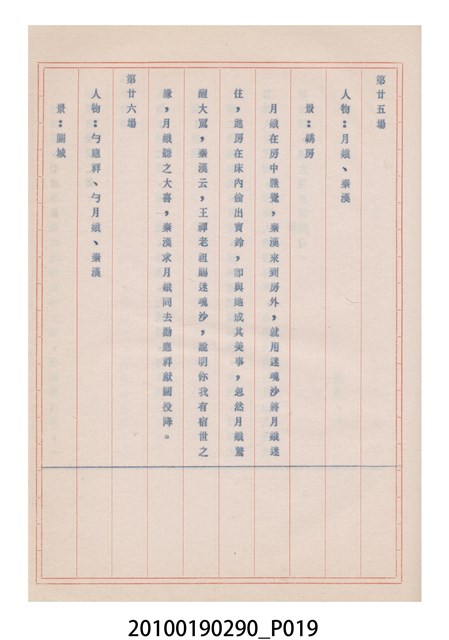 第廿五場
人物：月娥、秦漢
景：綉房
月娥在房中睡覺，秦漢來到房外，就用迷魂沙將月娥迷
住，進房在床內偷出寶鈴，即與她成其美事，忽然月娥驚
醒大罵，秦漢云，王禪老祖賜迷魂沙，說明你我有宿世之
緣，月娥聽之大喜，秦漢求月娥同去勸應祥獻關投降。
第廿六場
人物：勻應祥、勻月娥、秦漢
景：關城
20100190290_P019